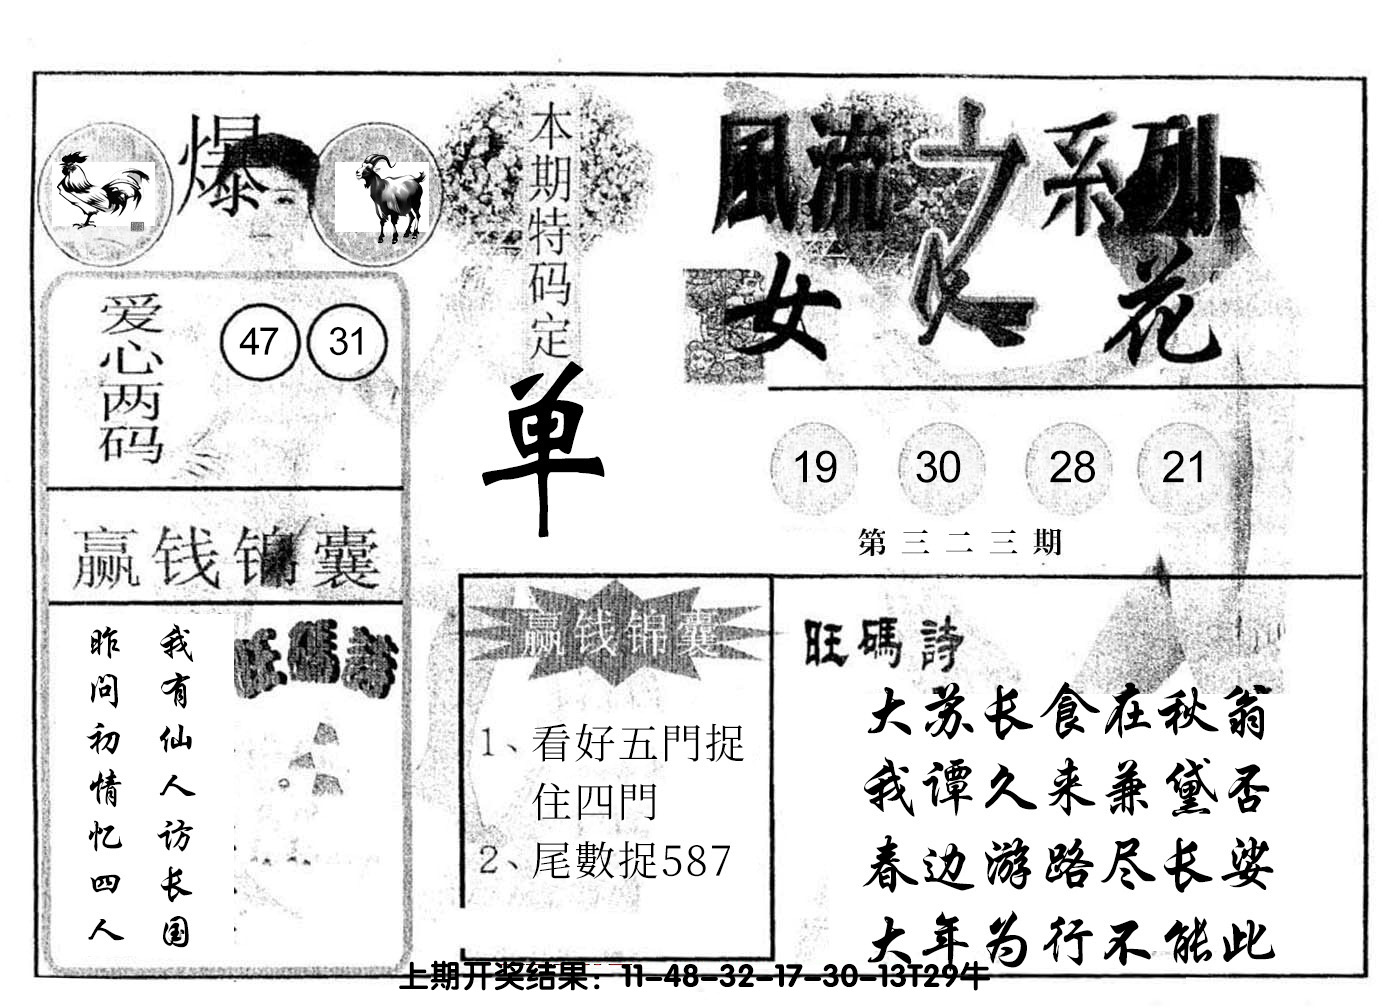 爆
本期特码定
单
風流之系列
女人花
爱心两码
47 31
19 30 28 21
第三二三期
赢钱锦囊
我有仙人访长国
昨问初情忆四人
旺碼詩
赢钱锦囊
1、看好五門捉
住四門
2、尾數捉587
旺碼詩
大苏长食在秋翁
我谭久来兼黛否
春边游路尽长娑
大年为行不能此
上期开奖结果：11-48-32-17-30-13T29牛